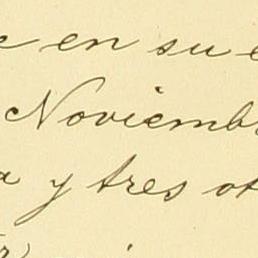 e en su e
Noviemb
a y tres ot